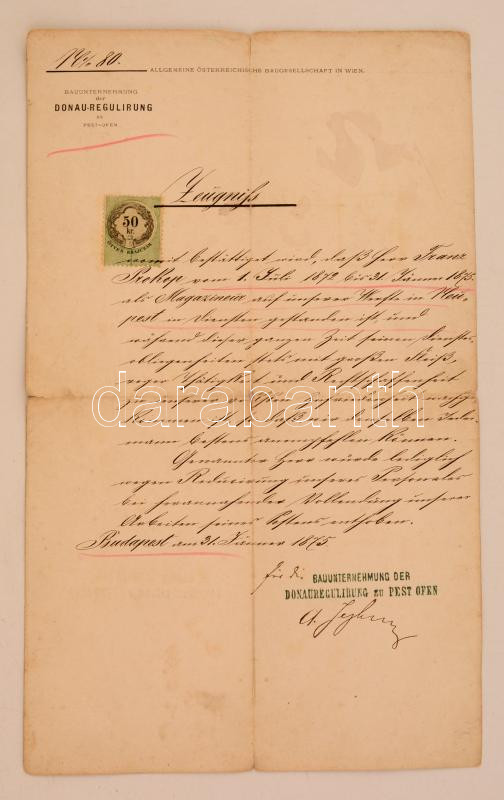 80.
ALLGEMEINE ÖSTERREICHISCHE BAUGESELLSCHAFT IN WIEN.
BAUUNTERNEHMUNG
der
DONAU-REGULIRUNG
zu
PEST-OFEN
Zeugniß
50
kr.
womit bestättiget wird, daß Herr Franz
Prokop vom 1. Juli 1872 bis 31. Jänner 1875.
als Magazineur auf unserer Werfte in Neu-
pest in Diensten gestanden ist, und
während dieser ganzen Zeit seinen Dienstes-
obliegenheiten stets mit großem Fleiß,
reger Thätigkeit und Rechtschaffenheit
daß wir denselben Jeder-
mann bestens anempfehlen können.
Genannter Herr wurde lediglich
wegen Reducirung unseres Personales
bei herannahender Vollendung unserer
Arbeiten seines Postens enthoben.
Budapest am 31. Jänner 1875.
für die BAUUNTERNEHMUNG DER
DONAUREGULIRUNG zu PEST OFEN
darabanth